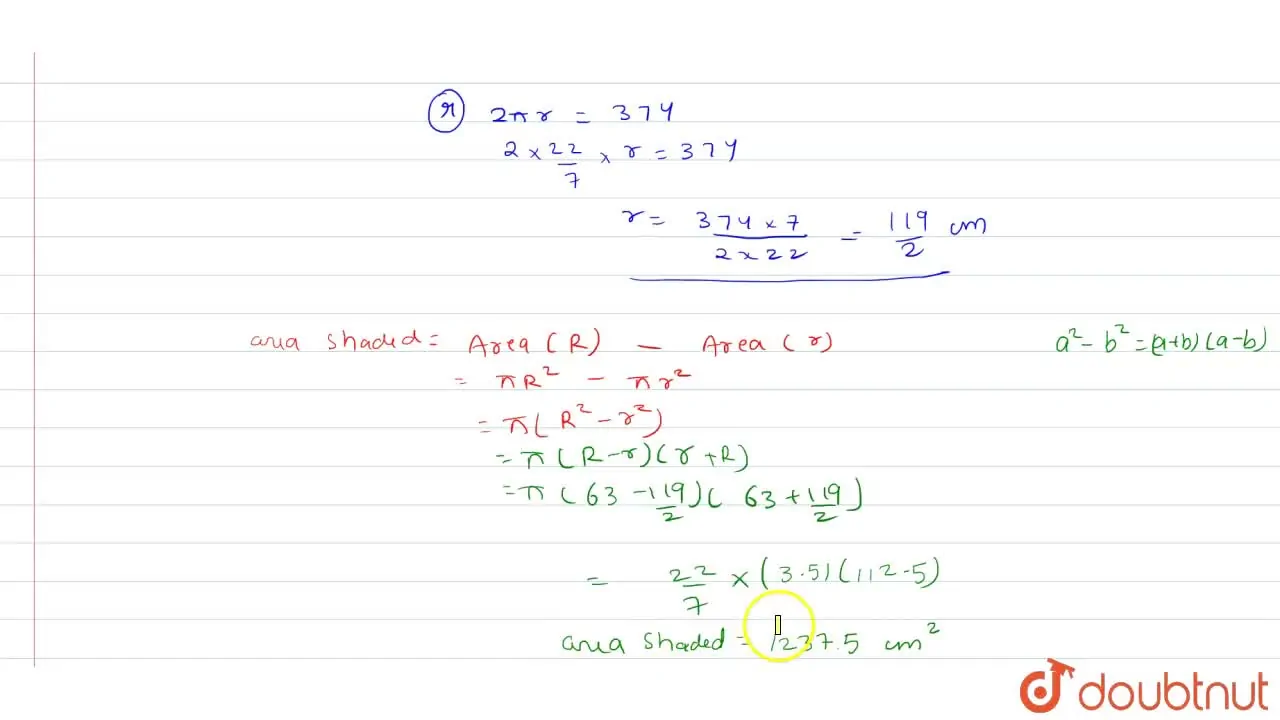 r 2πr = 374
2 × 22/7 × r = 374
r = 374 × 7 / 2 × 22 = 119/2 cm
area shaded = Area (R) - Area (r)
a² - b² = (a+b) (a-b)
= πR² - πr²
= π(R² - r²)
= π(R-r)(r+R)
= π(63 - 119/2)(63 + 119/2)
= 22/7 × (3.5)(112.5)
area shaded = 1237.5 cm²
doubtnut